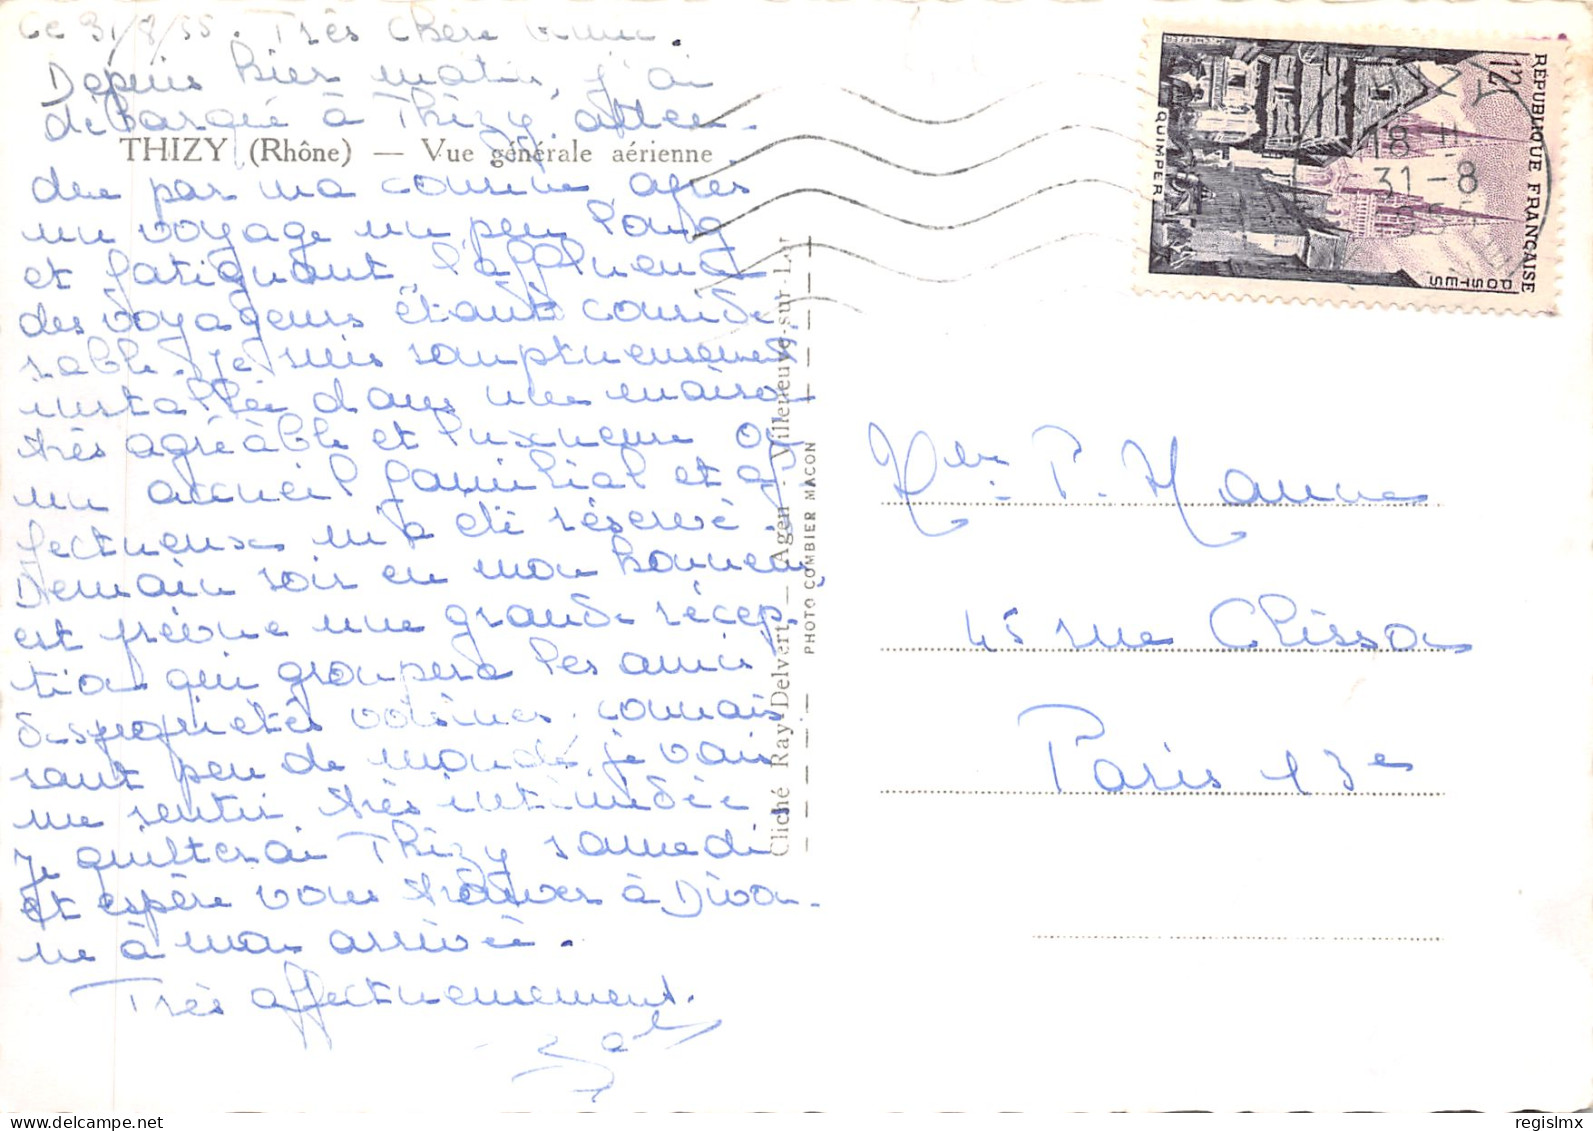 Ce 31/8/55. Très Chère
Depuis hier matin, j'ai
débarqué à Thizy, atten-
THIZY (Rhône) — Vue générale aérienne
due par ma cousine après
un voyage un peu long
et fatiguant l'affluence
des voyageurs étant considé-
rable. Je suis somptueusement
installée dans une maison
très agréable et luxueuse où
un accueil familial et af-
fectueux m'a été réservé.
Demain soir en mon honneur
est prévue une grande récep-
tion qui groupera les amis
des propriétés voisines, connais
sant peu de monde, je vais
me sentir très intimidée
Je quitterai Thizy samedi
et espère vous trouver à Divon-
ne à mon arrivée.
Très affectueusement.
Cliché Ray-Delvert — Agen - Villeneuve-sur-Lot
PHOTO COMBIER MACON
RÉPUBLIQUE FRANÇAISE
12f
POSTES
QUIMPER
THIZY
18 H
31-8
Mme P. Hannes
45 rue Clisson
Paris 13e
regislmx